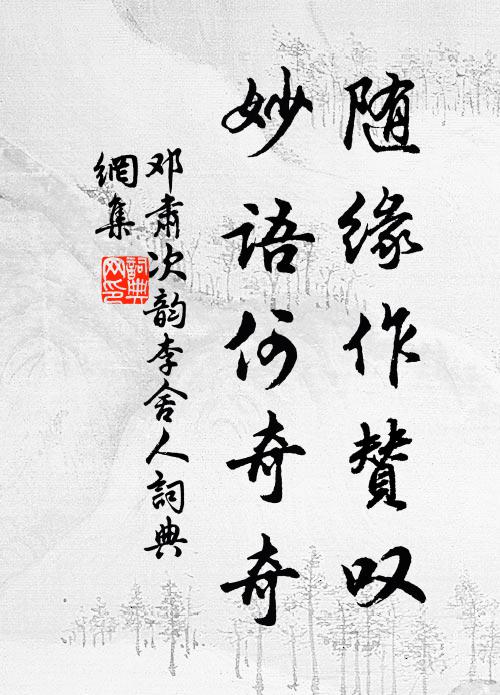 随缘作賛叹
妙语何奇奇
邓肃次韵李舍人詞典
網集
詞典
网印